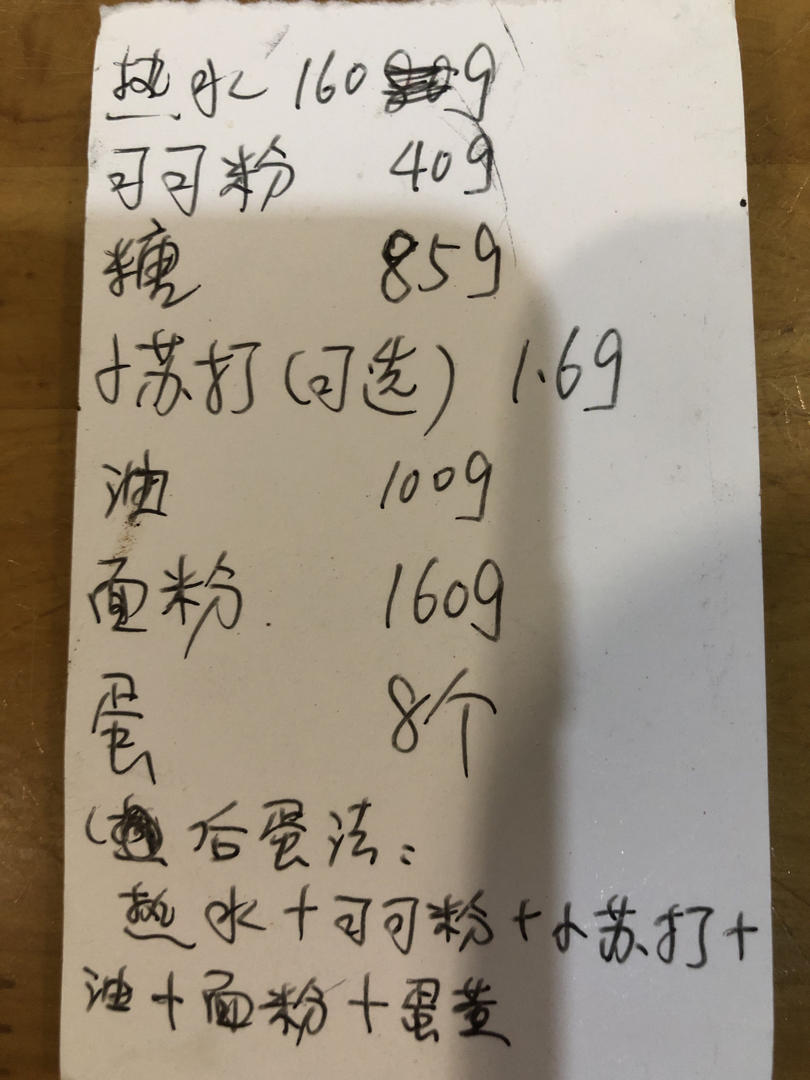 热水 160 g
可可粉 40g
糖 85g
小苏打(可选) 1.6g
油 100g
面粉 160g
蛋 8个
( 后蛋法:
热水+可可粉+小苏打+
油+面粉+蛋黄